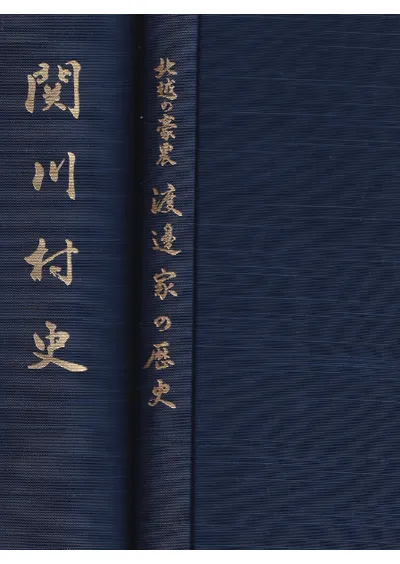 関川村史
北越の豪農 渡邊家の歴史